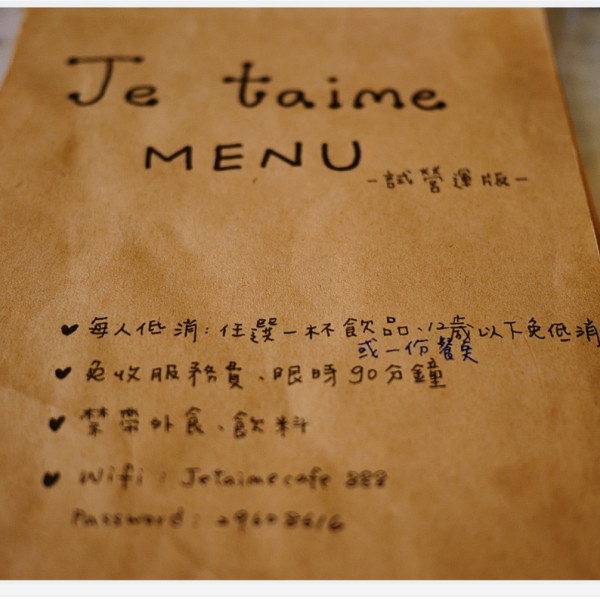 Je taime
MENU
-試營運版-
♥ 每人低消:任選一杯飲品、12歲以下免低消
或一份餐
♥ 免收服務費、限時90分鐘
♥ 禁帶外食、飲料
♥ Wifi : Jetaimecafe 888
Password :